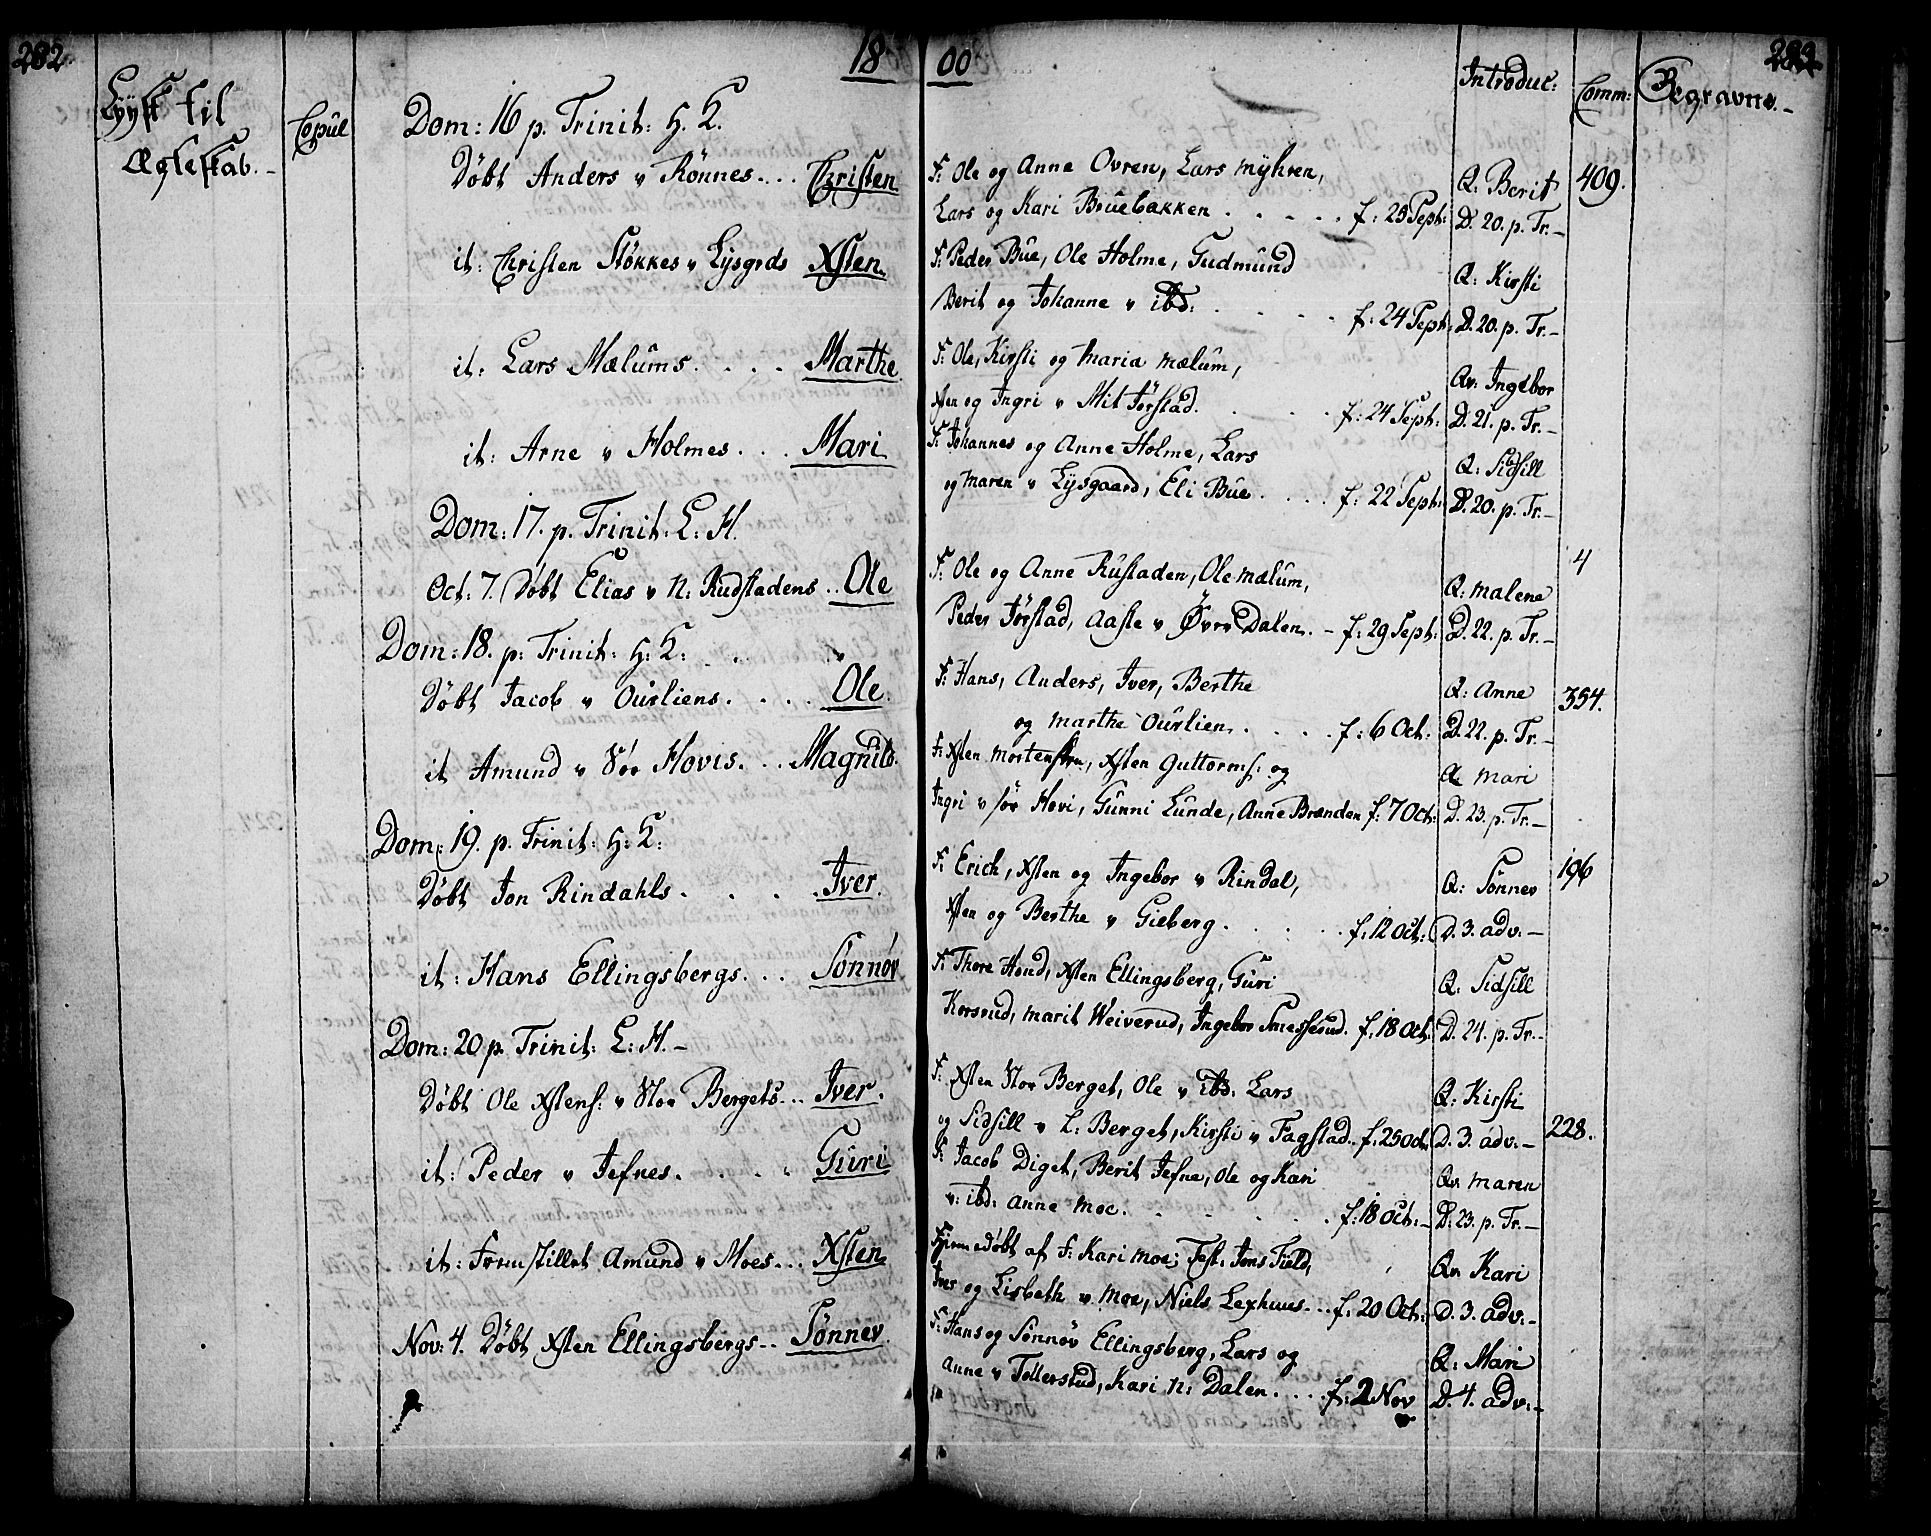 282
18
00
283
Lyyst til
Ægteskab.-
Copul
Introduc:
Comm:
Begravne.-
Dom: 16 p. Trinit: H. K.
Døbt Anders v Rönnes... Christen
F: Ole og Anne Ovren, Lars Myhren,
Lars og Kari Bruebakken..... f: 25 Sept:
Q: Berit
D. 20. p. Tr.-
409.
it: Christen Stökkes v Lysgrds Xsten
F: Peder Bue, Ole Holme, Gudmund
Berit og Johanne v ibd:.... f: 24 Sept:
Q: Kirsti
D. 20. p. Tr.-
it: Lars Mælums.... Marthe
F: Ole, Kirsti og Maria Mælum,
Xsten og Ingri v Mit Jörstad.... f: 24 Sept:
Qv: Ingebor
D. 21. p. Tr.-
it: Arne v Holmes... Mari
F: Johannes og Anne Holme, Lars
og Maren v Lysgaard, Eli Bue.... f: 22 Sept:
Q: Sidsill
D. 20. p. Tr.-
Dom: 17. p. Trinit. L: H.
Oct. 7. Døbt Elias v N: Rudstadens.. Ole
F: Ole og Anne Rustaden, Ole Mælum,
Peder Jörstad, Aaste v Øvre Dalen.- f: 29 Sept:
Q: Malene
D. 22. p. Tr.-
4
Dom: 18. p: Trinit: H: K:
Døbt Jacob v Ourliens.... Ole
F: Hans, Anders, Iver, Berthe
og Marthe Ourlien..... f: 6 Oct:
Q: Anne
D. 22. p. Tr.-
354.
it Amund v Sör Hovis... Magnild.
F: Xsten Mortensen, Xsten Guttorms: og
Ingri v sör Hovi, Gunni Lunde, Anne Brænden f: 7 Oct:
Q: Mari
D. 23. p. Tr.-
Dom: 19. p. Trinit: H: K:
Døbt Jon Rindahls..... Iver.
F: Erich, Xsten og Ingebor v Rindal,
Xsten og Berthe v Gieberg..... f: 12 Oct:
Q: Sönnev
D. 3. adv:-
196
it: Hans Ellingsbergs... Sönnöv
F: Thore Hond, Xsten Ellingsberg, Guri
Korsrud, Marit Weiverud, Ingebor Smessrud. f: 18 Oct:
Q: Sidsill
D. 24. p. Tr.-
Dom: 20 p. Trinit: L: H.-
Døbt Ole Xstens: v Stor Bergets... Iver.
F: Xsten Stor Berget, Ole v ibd: Lars
og Sidsill v L: Berget, Kirsti v Fagstad. f: 25 Oct:
Q: Kirsti
D. 3. adv:-
228.
it: Peder v Jefnes.... Guri
F: Jacob Diget, Berit Jefne, Ole og Kari
v: ibd: Anne Moe....... f: 18 Oct:-
Qv: Maren
D. 23. p. Tr.-
it: Fremstillet Amund v Moes... Xsten
Hjemedøbt af F: Kari Moe; Test: Jens Field,
Iver og Lisbeth v Moe, Niels Lexhuus... f: 20 Oct:
Qv. Kari
D. 3. adv:-
Nov: 4. Døbt Xsten Ellingsbergs.. Sönnev.
F: Hans og Sönnöv Ellingsberg, Lars og
Anne v Tollersrud, Kari N: Dalen.... f: 2 Nov
Q: Mari
D. 4. adv:-